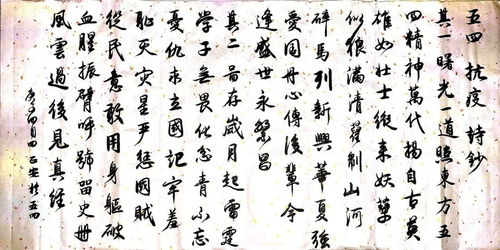 五四抗疫詩鈔
其一曙光一道照東方五
四精神萬代揚自古英
雄如壯士縱來妖孽
似狼滿清割山河
碎馬列新興華夏強
愛國丹心傳後輩今
逢盛世永繁昌
其二存歲月起雷霆
學子無畏化忿青不忘
憂仇求立國記牢羞
恥灭灾星严懲國賊
從民意敢用身軀破
血腥振臂呼號留史册
風雲過後見真經
庚子四月於五四